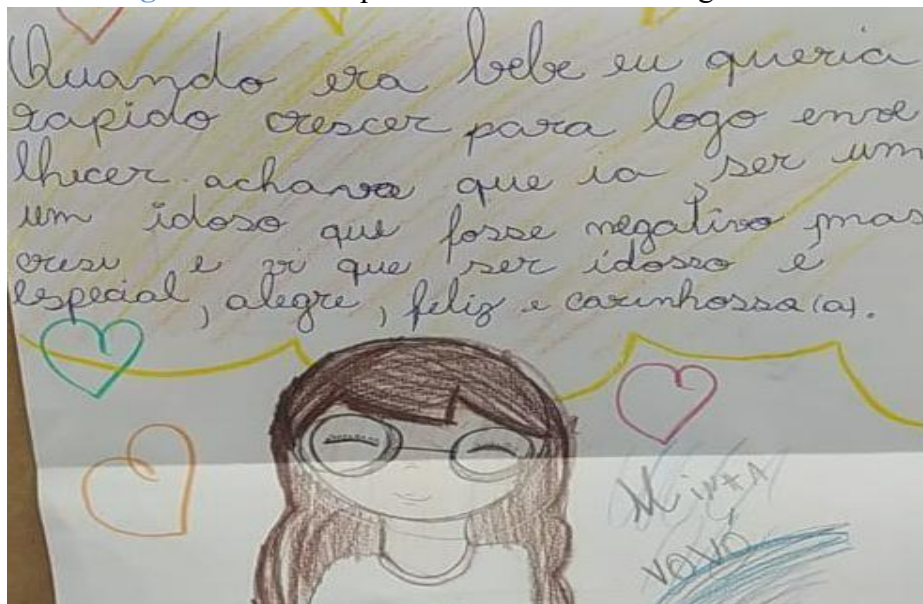 Quando era bebe eu queria
rapido crescer para logo enve
lhecer achava que ia ser um
um idoso que fosse negativo mas
cresi e vi que ser idosso é
especial, alegre, feliz e carinhossa(a).
Minha
vovó